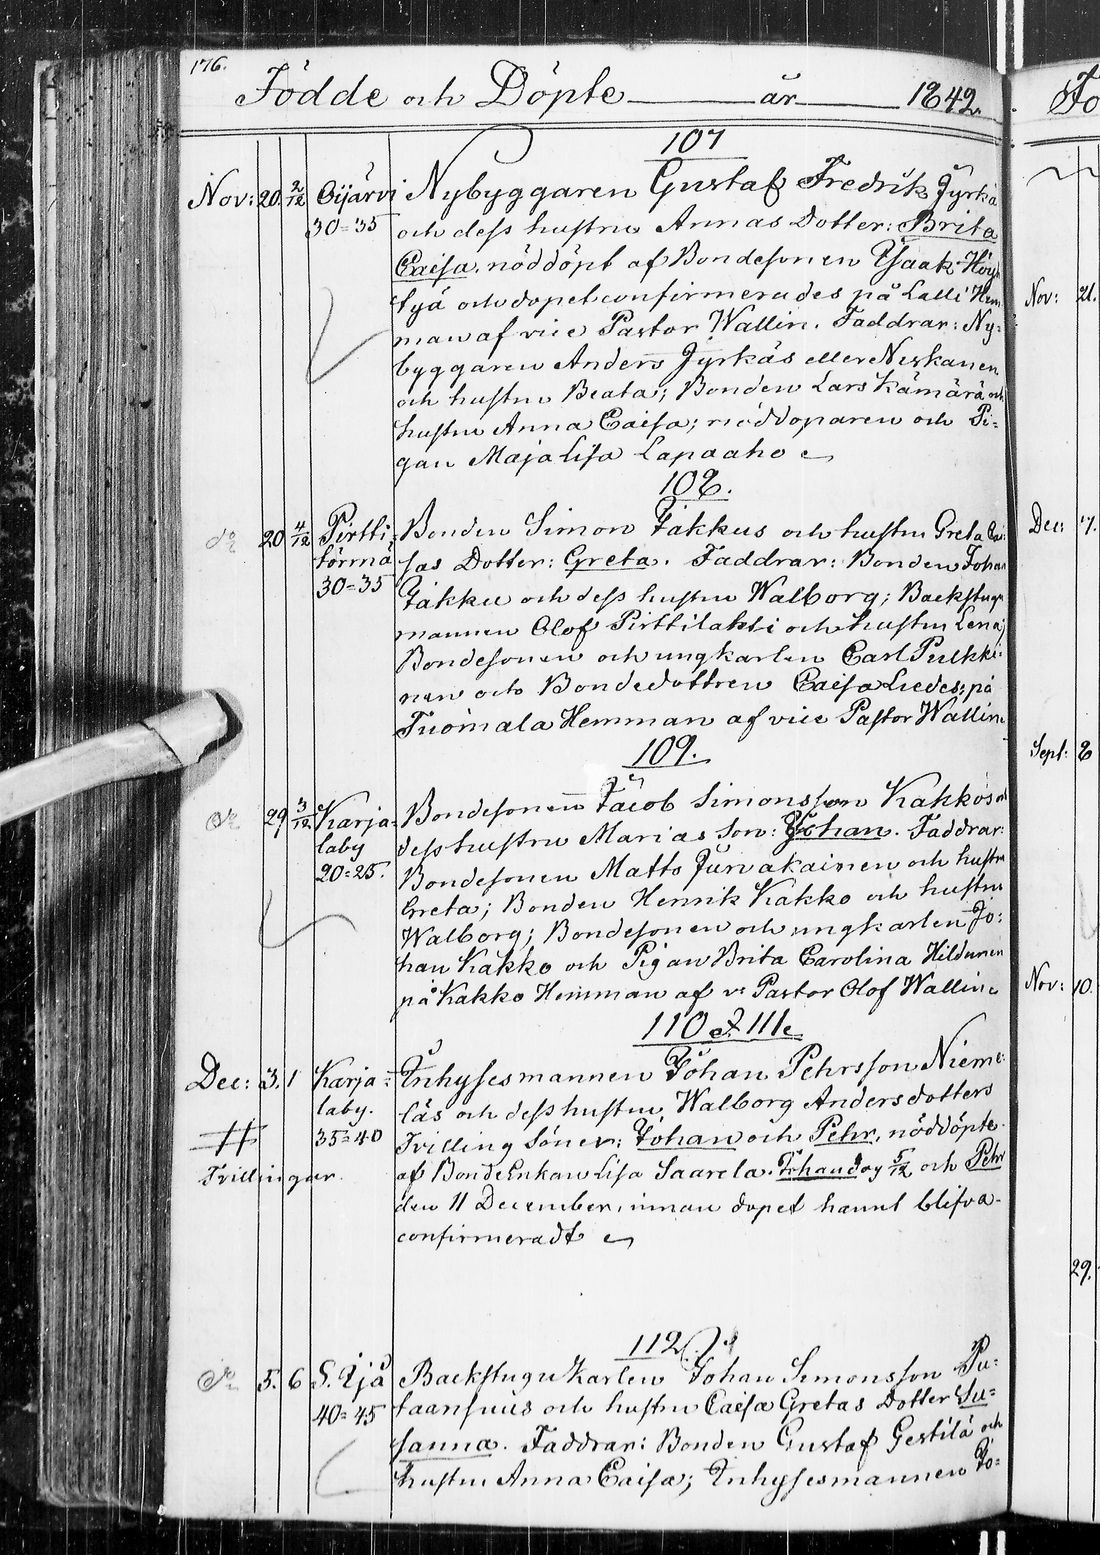 176.
Födde och Döpte år 1842.
107
Nov: 20. 2/12 Oijärvi Nybyggaren Gustaf Fredrik Jyrkä
30=35 och dess hustru Annas Dotter: Brita
Caisa, nöddöpt af Bondesonen Isaak Höy-
tyä och dopet confirmerades på Lalli Hem
man af vice Pastor Wallin. Faddrar: Ny=
byggaren Anders Jyrkäs eller Neskanen
och hustru Beata; Bonden Lars Kämärä och
hustru Anna Caisa; nöddöparen och Pi=
gan Maja Lisa Lapaaho
108.
do 20 4/12 Pirtti Bonden Simon Jakkus och hustru Greta Cai
törmä sas Dotter: Greta. Faddrar: Bonden Johan
30=35 Jakku och dess hustru Walborg; Backstugu
mannen Olof Pirttilahti och hustru Lena;
Bondesonen och ungkarlen Carl Pulkki=
nen och Bondedottren Caisa Luedes; på
Tuomala Hemman af vice Pastor Wallin
109.
do 29 3/12 Karja= Bondesonen Jacob Simonsson Kakkos och
laby dess hustru Marias Son: Johan. Faddrar:
20=25. Bondesonen Matts Jurvakainen och hustru
Greta; Bonden Henrik Kakko och hustru
Walborg; Bondesonen och ungkarlen Jo=
han Kakko och Pigan Brita Carolina Hildunen
på Kakko Hemman af v. Pastor Olof Wallin
110 & 111
Dec: 3. 1 Karja= Inhysesmannen Johan Pehrsson Nieme=
laby. läs och dess hustru Walborg Andersdotters
35=40 Tvilling Söner: Johan och Pehr, nöddöpte
Tvillingar. af BondeEnkan Lisa Saarela. Johan dog 5/12 och Pehr
den 11 December, innan dopet hannt blifva
confirmeradt
112
do 5. 6 S. Ijå Backstugukarlen Johan Simonsson Pu=
40=45 taansuus och hustru Caisa Gretas Dotter Su=
sanna. Faddrar: Bonden Gustaf Gestilä och
hustru Anna Caisa; Inhysesmannen Jo=
Fö
Nov: 21.
Dec: 17.
Sept: 8
Nov: 10.
29.